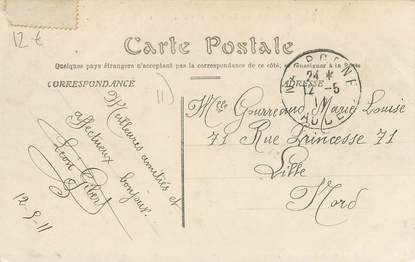 12 €
Carte Postale
Quelques pays étrangers n'acceptant pas la correspondance de ce côté, se renseigner à la Poste
CORRESPONDANCE
ADRESSE
NARBONNE
24 *
12 - 5
11
AUDE
Meilleures amitiés et
affectueux bonjour.
Léon Gibert
12-5-11
Melle Gourreand Marie Louise
71 Rue Princesse 71
Lille
Nord